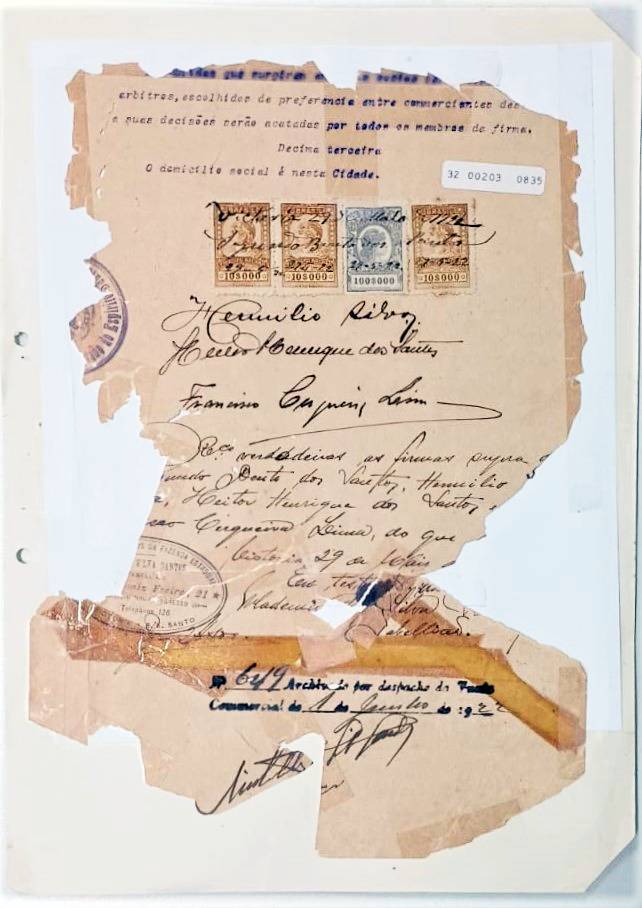 que surgirem
arbitros, escolhidos de preferencia entre commerciantes des
a suas decisões serão acatadas por todos os membros da firma.
Decima terceira
O domicilio social é nesta Cidade.
32 00203 0835
Victoria 29 de Maio 1922
Bento dos Santos
10$000 10$000 100$000 10$000
Hermilio Silva
Heitor Henrique dos Santos
Francisco Cerqueira Lima
Rec.º verdadeiras as firmas supra
undo Bento dos Santos, Hermilio
a, Heitor Henrique dos Santos,
Cerqueira Lima, do que
Victoria 29 de Maio
Em test
DA FAZENDA ESTADUAL
SANTOS
Freire, 21
Telephone 126
E. SANTO
Silva
Tabellião.
Nº 649 Archivado por despacho da Junta
Commercial de 1 de Junho de 1922